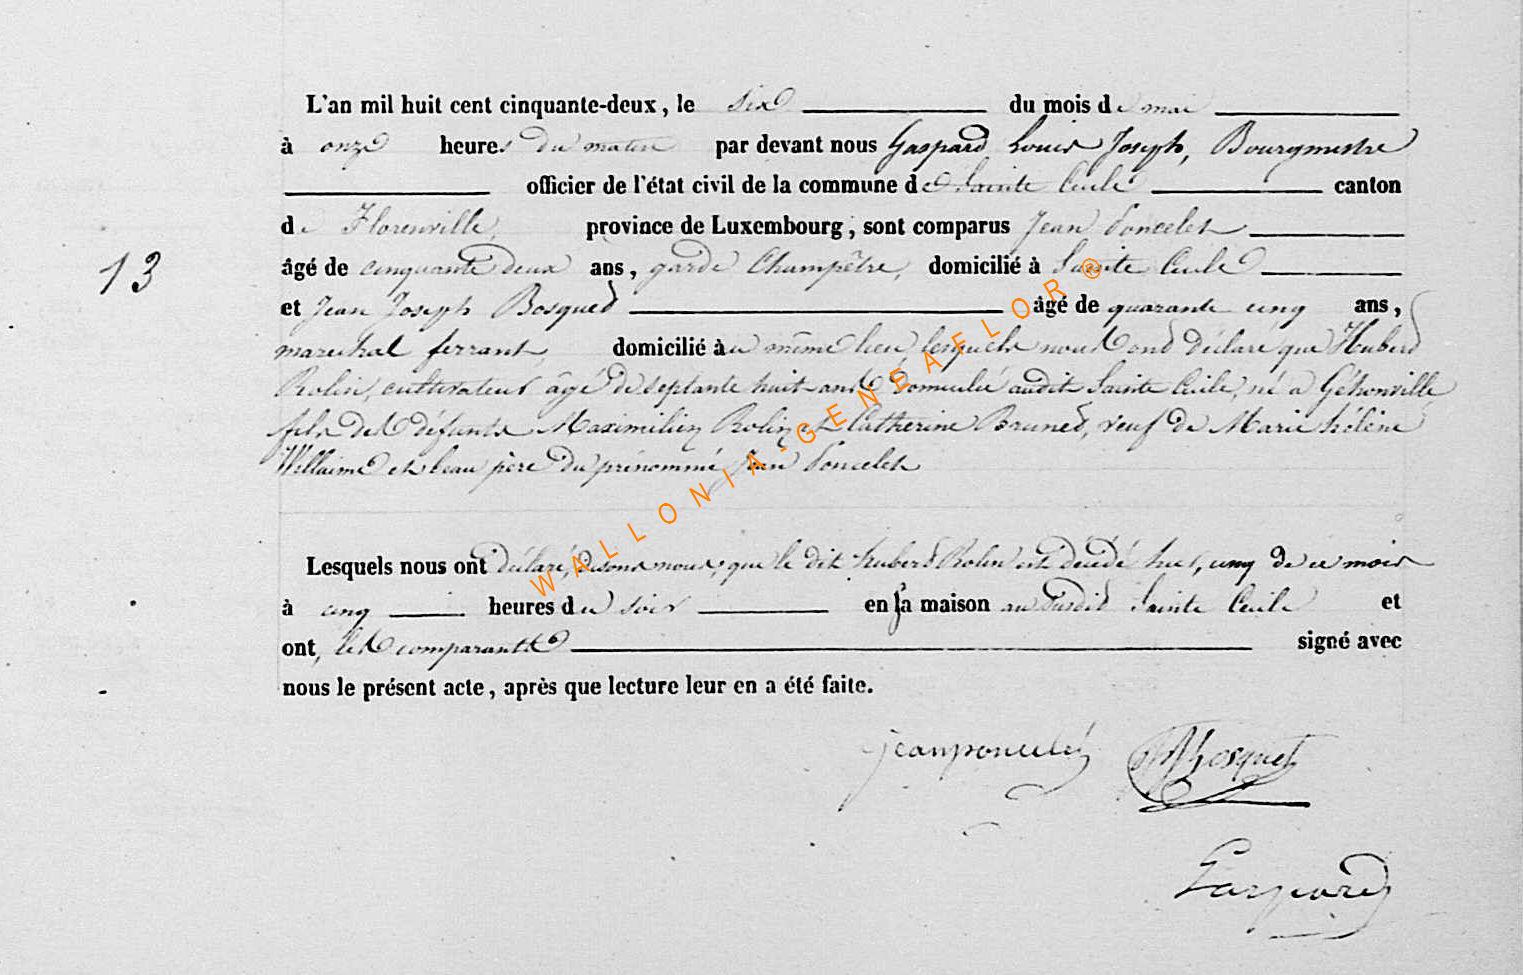 L'an mil huit cent cinquante-deux, le six du mois de mai
à onze heures du matin par devant nous Gaspard Louis Joseph, Bourgmestre
officier de l'état civil de la commune de Sainte Cecile canton
de Florenville, province de Luxembourg, sont comparus Jean Poncelet
13
âgé de cinquante deux ans, garde Champêtre, domicilié à Sainte Cecile
et Jean Joseph Bosquet âgé de quarante cinq ans,
marechal ferrant, domicilié au même lieu, lesquels nous ont déclaré que Hubert
Rolin, cultivateur âgé de septante huit ans domicilié audit Sainte Cecile, né a Géhonville
fils des défunts Maximilien Rolin et Catherine Brunet, veuf de Marie hélène
Willaime et beau père du prénommé Jean Poncelet
Lesquels nous ont déclaré, disons nous, que le dit hubert Rolin est décédé hier, cinq de ce mois
à cinq heures du soir en sa maison au susdit Sainte Cecile et
ont, les comparants signé avec
nous le présent acte, après que lecture leur en a été faite.
jean poncelet
Bosquet
Gaspard
WALLONIA-GENEAFLOR®